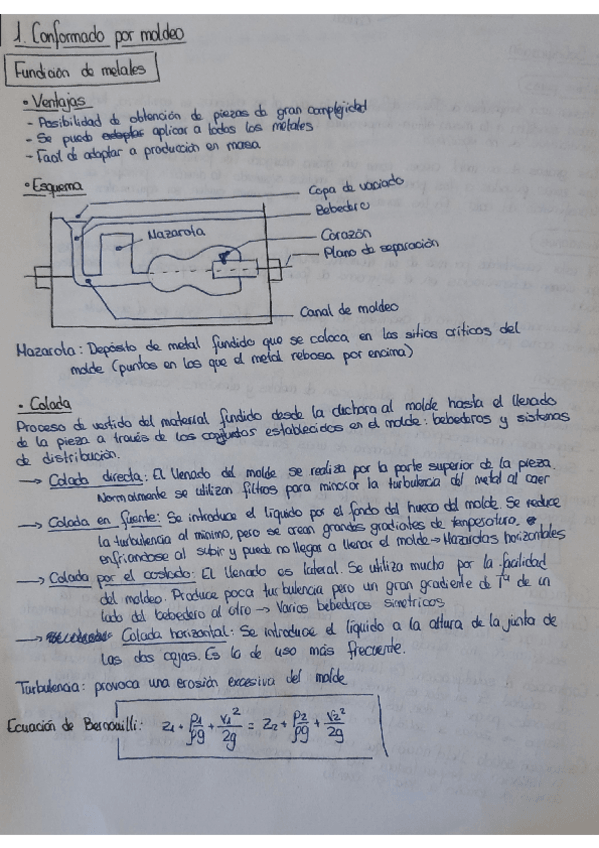 1. Conformado por moldeo
Fundición de metales
• Ventajas
- Posibilidad de obtención de piezas de gran complejidad
- Se puede aplicar a todos los metales
- Facil de adaptar a producción en masa
• Esquema
Copa de vaciado
Bebedero
Mazarota
Corazón
Plano de separación
Canal de moldeo
Mazarota: Depósito de metal fundido que se coloca en los sitios críticos del
molde (puntos en los que el metal rebosa por encima)
• Colada
Proceso de vertido del material fundido desde la cuchara al molde hasta el llenado
de la pieza a través de los conductos establecidos en el molde: bebederos y sistemas
de distribución.
→ Colada directa: El llenado del molde se realiza por la parte superior de la pieza.
Normalmente se utilizan filtros para minorar la turbulencia del metal al caer
→ Colada en fuente: Se introduce el líquido por el fondo del hueco del molde. Se reduce
la turbulencia al mínimo, pero se crean grandes gradientes de temperatura,
enfriandose al subir y puede no llegar a llenar el molde → Mazarotas horizontales
→ Colada por el costado: El llenado es lateral. Se utiliza mucho por la facilidad
del moldeo. Produce poca turbulencia pero un gran gradiente de Tª de un
lado del bebedero al otro → Varios bebederos simetricos
→ Colada horizontal: Se introduce el líquido a la altura de la junta de
las dos cajas. Es la de uso más frecuente.
Turbulencia: provoca una erosión excesiva del molde
Ecuación de Bernouilli: z₁ + p₁/ρg + v₁²/2g = z₂ + p₂/ρg + v₂²/2g